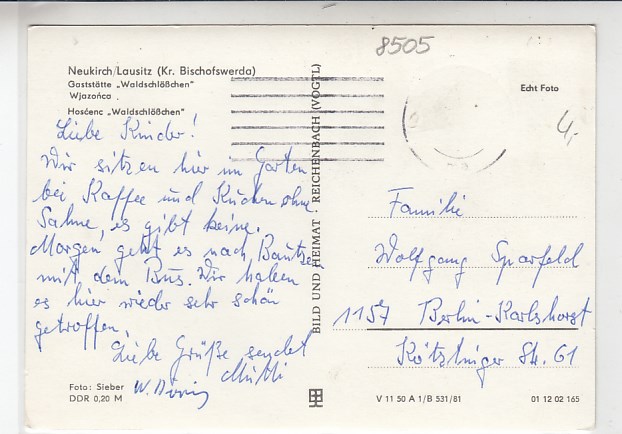 8505
Neukirch/Lausitz (Kr. Bischofswerda)
Gaststätte „Waldschlößchen"
Wjazońca
Hosćenc „Waldschlößchen"
Liebe Kinder!
Wir sitzen hier im Garten
bei Kaffee und Kuchen ohne
Sahne, es gibt keine.
Morgen geht es nach Bautzen
mit dem Bus. Wir haben
es hier wieder sehr schön
getroffen.
Liebe Grüße sendet
Mutti
Foto: Sieber
DDR 0,20 M
BILD UND HEIMAT · REICHENBACH (VOGTL)
Echt Foto
4,-
Familie
Wolfgang Sparfeld
1157 Berlin-Karlshorst
Kötztinger Str. 61
V 11 50 A 1/B 531/81
01 12 02 165